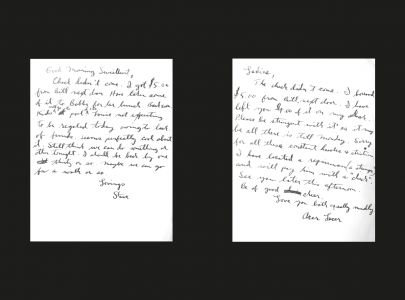 Good Morning Sweetheart,
Check didn't come. I got $5.00
from Bill next door. Have taken some
of it to Bobby for her lunch
to be repaid today owing to lack
of funds seems perfectly cool about
it. Still think we can do something or
other tonight. I shall be back by one
thirty or so. maybe we can go
for a walk or so.
Lovings
Steve
Ladies,
The check didn't come. I borrowed
$5.00 from Bill next door. I have
left you of it on my desk.
Please be stringent with it as it may
be all there is till Monday. Sorry
for all these constant hassles &
I have located a
and will pay him with a "check"
See you later this afternoon.
Be of good cheer
Love you both equally madly